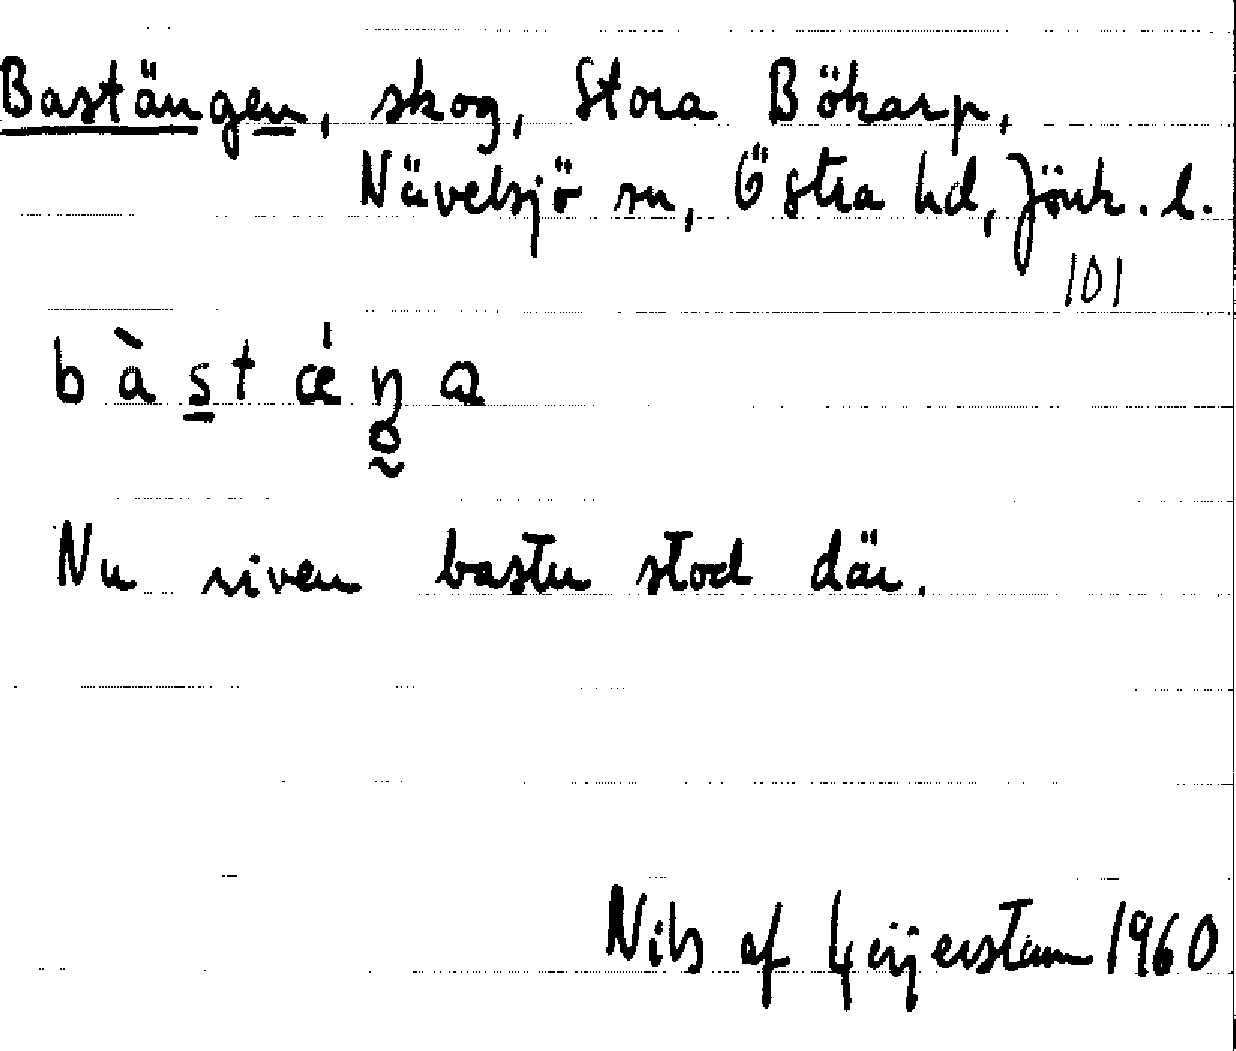 Bastängen, skog, Stora Bökarp,
Nävelsjö sn, Östra hd, Jönk. l.
101
bàstǽŋa
Nu riven bastu stod där.
Nils af Geijerstam 1960